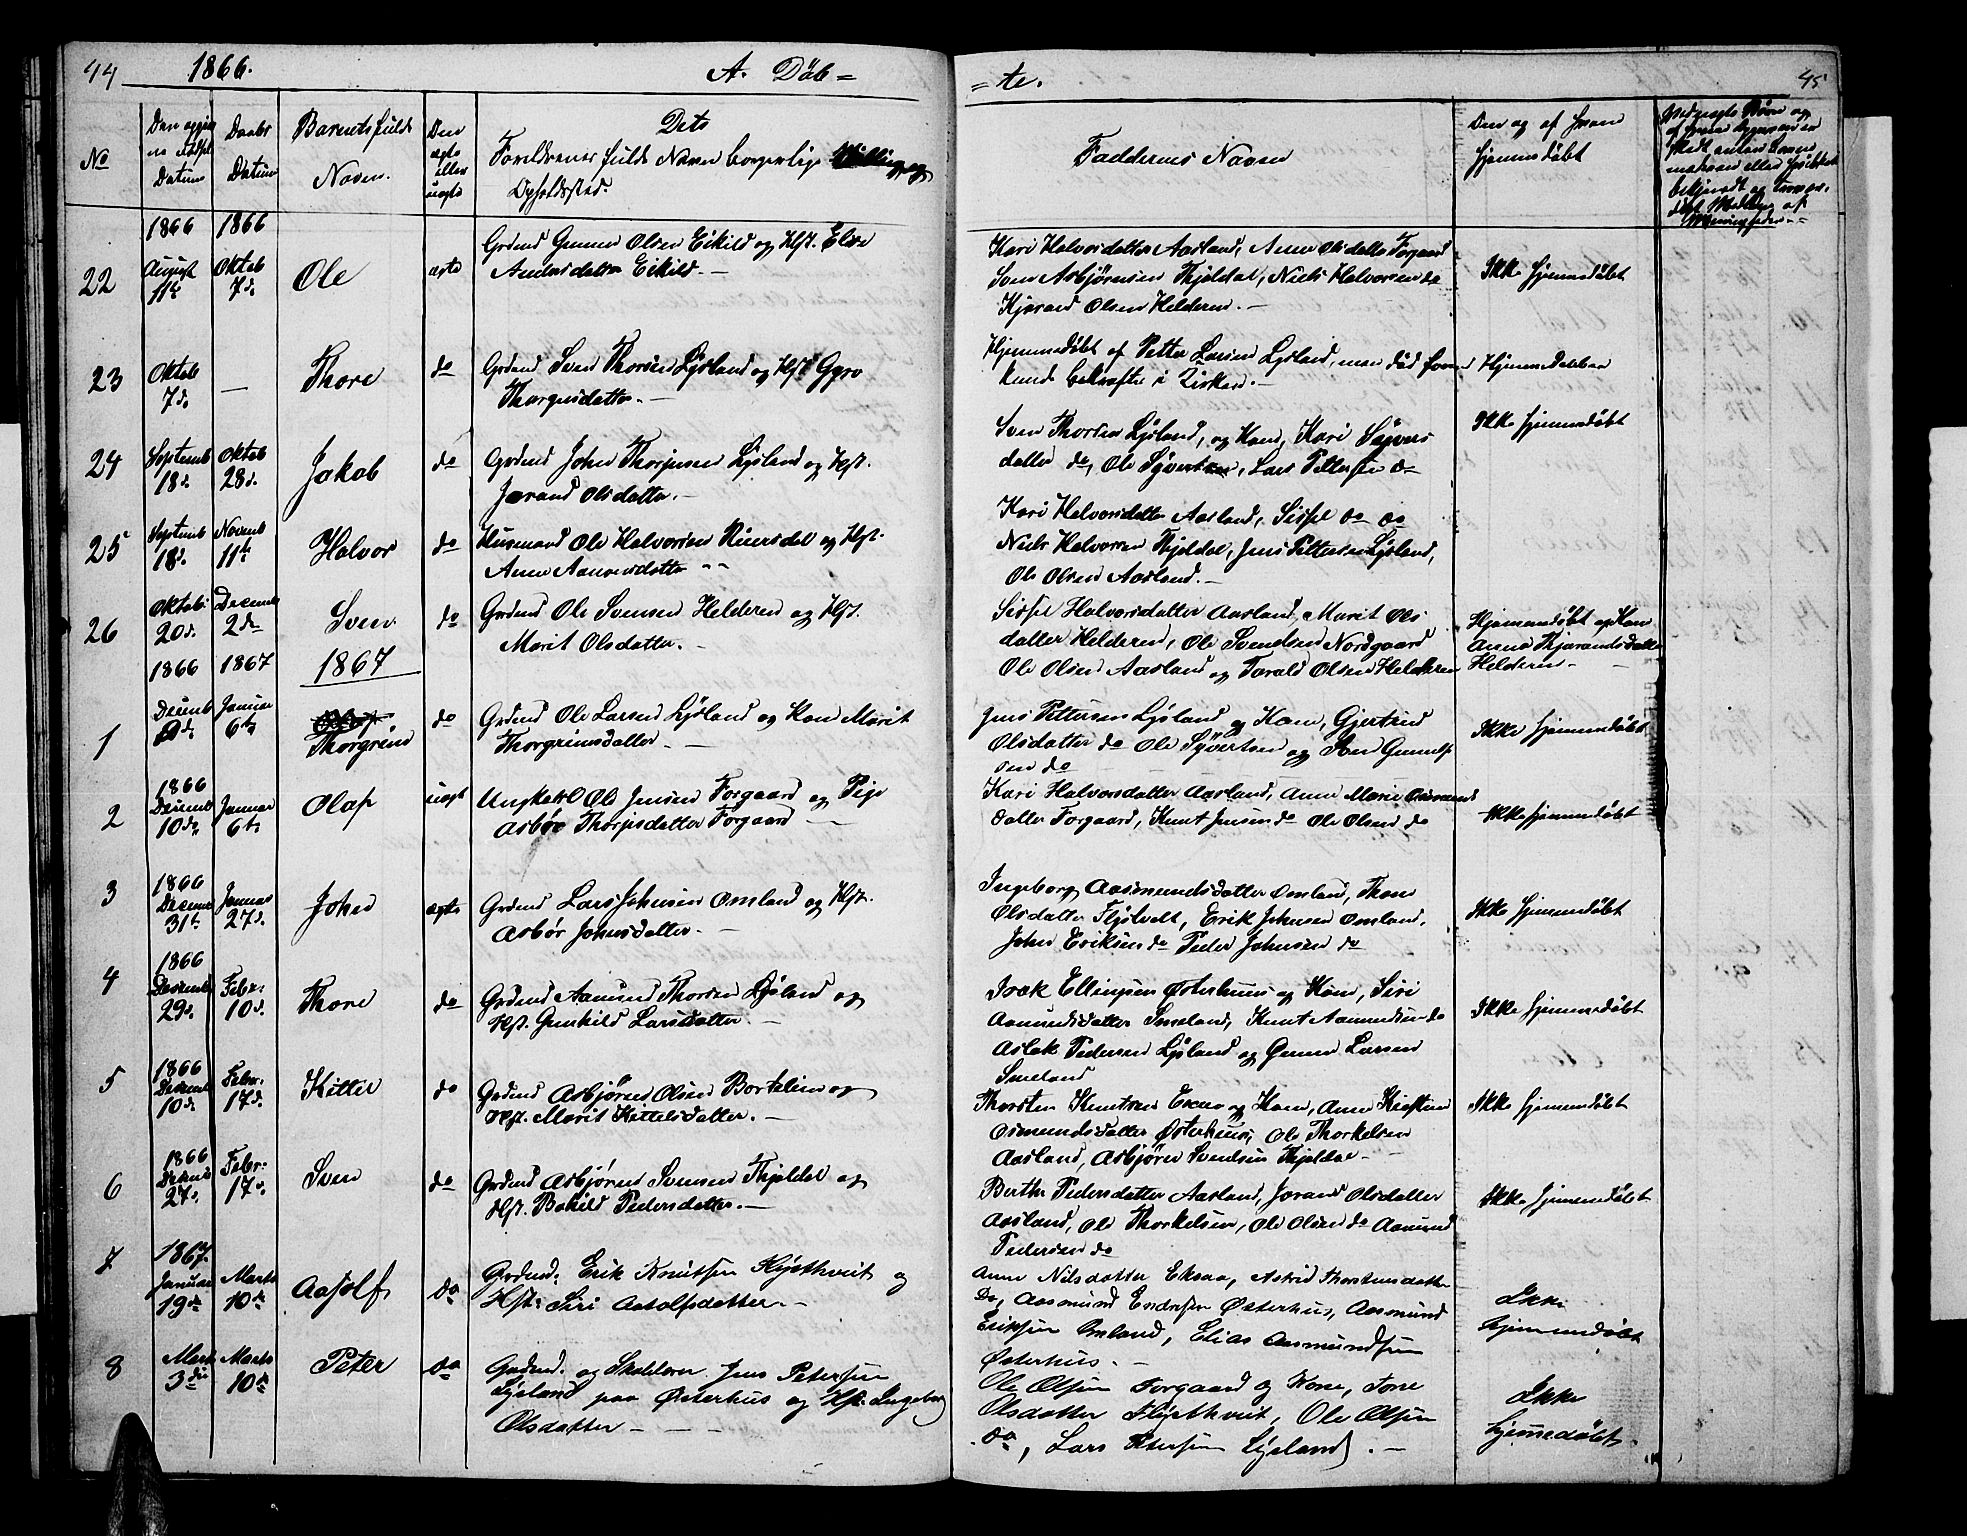 44 1866. A. Döb =
= te. 45
No
Den opgiv
ne Fødsel
Datum
Daabs
Datum
Barnets fulde
Navn.
Den
ægte
eller
uægte
Dets
Foreldrenes fulde Navn borgerlige Stilling og
Opholdssted.
Faddernes Navne
Den og af hvem
hjemmedöbt
1866 1866
22
August
11te
Oktob
7de
Ole
ægte
Grdmd Gunner Olsen Eikild og Hst. Else
Andersdatter Eikild. —
Kari Halvorsdatter Aasland, Anne Olsdatter Forgaard
Sven Asbjörnsen Kjeldal, Niels Halvorsen do
Kjørand Olsen Helderen. —
Ikke hjemmedöbt
23
Oktob
7de
—
Thore
do
Grdmd Sven Thorsen Lysland og Hst Gyro
Thorgusdatter. —
Hjemmedöbt af Petter Larsen Lysland, men död forend
kunde bekræftes i Kirken. —
Hjemmedöbt
24
Septemb
18de
Oktob
28de
Jakob
do
Grdmd John Thorjusen Lysland og Hst.
Jørand Olsdatter. —
Sven Thorsen Lysland, og Kone, Kari Syvers
datter do, Ole Syvertsen, Lars Pettersen do
Ikke hjemmedöbt
25
Septemb
18de
Novemb
11te
Halvor
do
Husmand Ole Halvorsen Riversdal og Hst.
Anne Aanensdatter
Kari Halvorsdatter Aasland, Sissel do do
Niels Halvorsen Kjeldal, Jens Pettersen Lysland,
Ole Olsen Aasland. —
26
Oktob:
20de
Decemb
2den
Sven
do
Grdmd Ole Svensen Helderen og Hst.
Marit Olsdatter. —
Sissel Halvorsdatter Aasland, Marit Ols
datter Helderen, Ole Svendsen Nordgaard
Ole Olsen Aasland og Tarald Olsen Helderen
Hjemmedöbt af Kone
Anne Kjørandsdatter
Helderen —
1866 1867 1867
1
Decemb
Januar
6te
Thorgrim
do
Grdmd Ole Larsen Lysland og Kone Marit
Thorgrimsdatter. —
Jens Pettersen Lysland og Kone, Gjertrud
Olsdatter do Ole Syvertsen og Gunulf
sen do
Ikke hjemmedöbt
2
1866
Decemb
10de
Januar
6te
Olaf
uægt
Ungkarl Ole Jensen Forgaard og Pige
Asbör Thorjusdatter Forgaard —
Kari Halvorsdatter Aasland, Anne Marie Osmunds
datter Forgaard, Knut Jensen do Ole Olsen do
Ikke hjemmedöbt
3
1866
Decemb
31te
Januar
27de
John
ægte
Grdmd Lars Johnsen Omland og Hst.
Asbör Johnsdatter. —
Ingeborg Aasmundsdatter Omland, Thone
Olsdatter Fljötvelt, Erik Johnsen Omland,
John Eriksen do Peder Johnsen do
Ikke hjemmedöbt
4
1866
Decemb
29de
Febr:
10de
Thore
do
Grdmd Aamund Thorsen Lysland og
Hst. Gunhild Larsdatter. —
Isak Ellingsen Österhuus og Kone, Siri
Aamundsdatter Smeland, Knut Aamundsen do
Aslak Pedersen Lysland og Gunner Larsen
Smeland
Ikke hjemmedöbt
5
1866
Decemb
10de
Febr:
17de
Kittel
do
Grdmd Asbjörn Olsen Bortelien og
Hst. Marit Kittelsdatter. —
Thorsten Knutsen Eksaa og Kone, Anne Kirstine
Osmundsdatter Österhuus, Ole Thorkelsen
Aasland, Asbjörn Svendsen Kjeldal —
Ikke hjemmedöbt
6
1866
Decemb
27de
Febr:
17de
Sven
do
Grdmd Asbjörn Svensen Kjeldal og
Hst. Bohild Pedersdatter. —
Berthe Pedersdatter Aasland, Jorand Olsdatter
Aasland, Ole Thorkelsen, Ole Olsen do Aamund
Pedersen do
Ikke hjemmedöbt
7
1867.
Januar
19de
Marts
10de
Aasolf
do
Grdmd: Erik Knutsen Fljøthveit og
Hst: Siri Aasolfsdatter. —
Anne Nilsdatter Eksaa, Astrid Thorstensdatter
Do, Aasmund Endresen Österhus, Aasmund
Eriksen Omland, Elias Aasmundsen
Österhus. —
Ikke
hjemmedöbt
8
Marts
3die
Marts
10de
Peter
do
Grdmd. og Skolelærer Jens Petersen
Lysland paa Østerhus og Hst. Ingeborg
Olsdatter — — —
Ole Olsen Forgaard og Kone, Tone
Olsdatter Fljøthveit, Ole Olsen
do, Lars Petersen Lysland. —
Ikke
hjemmedöbt.